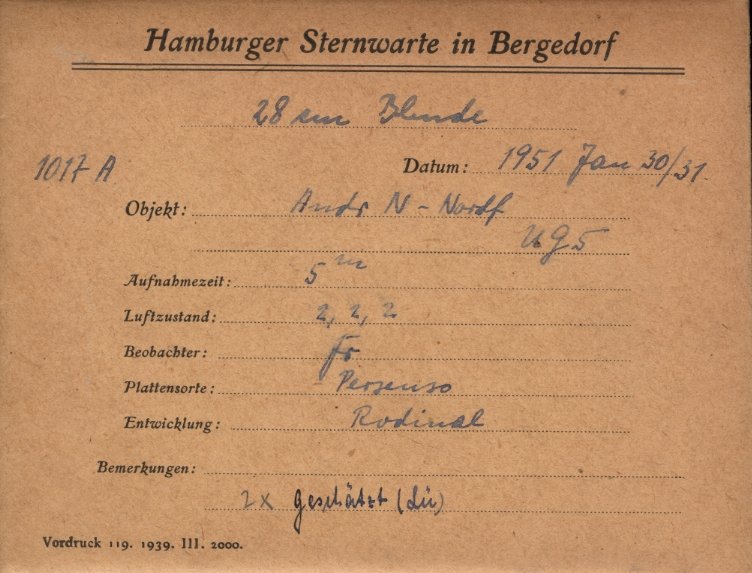 Hamburger Sternwarte in Bergedorf
28 cm Blende
1017 A Datum: 1951 Jan 30/31.
Objekt: Andr N - Nordf
UG5
Aufnahmezeit: 5 m
Luftzustand: 2, 2, 2
Beobachter: Fr
Plattensorte: Persenso
Entwicklung: Rodinal
Bemerkungen:
2x geschätzt (Lü)
Vordruck 119. 1939. III. 2000.